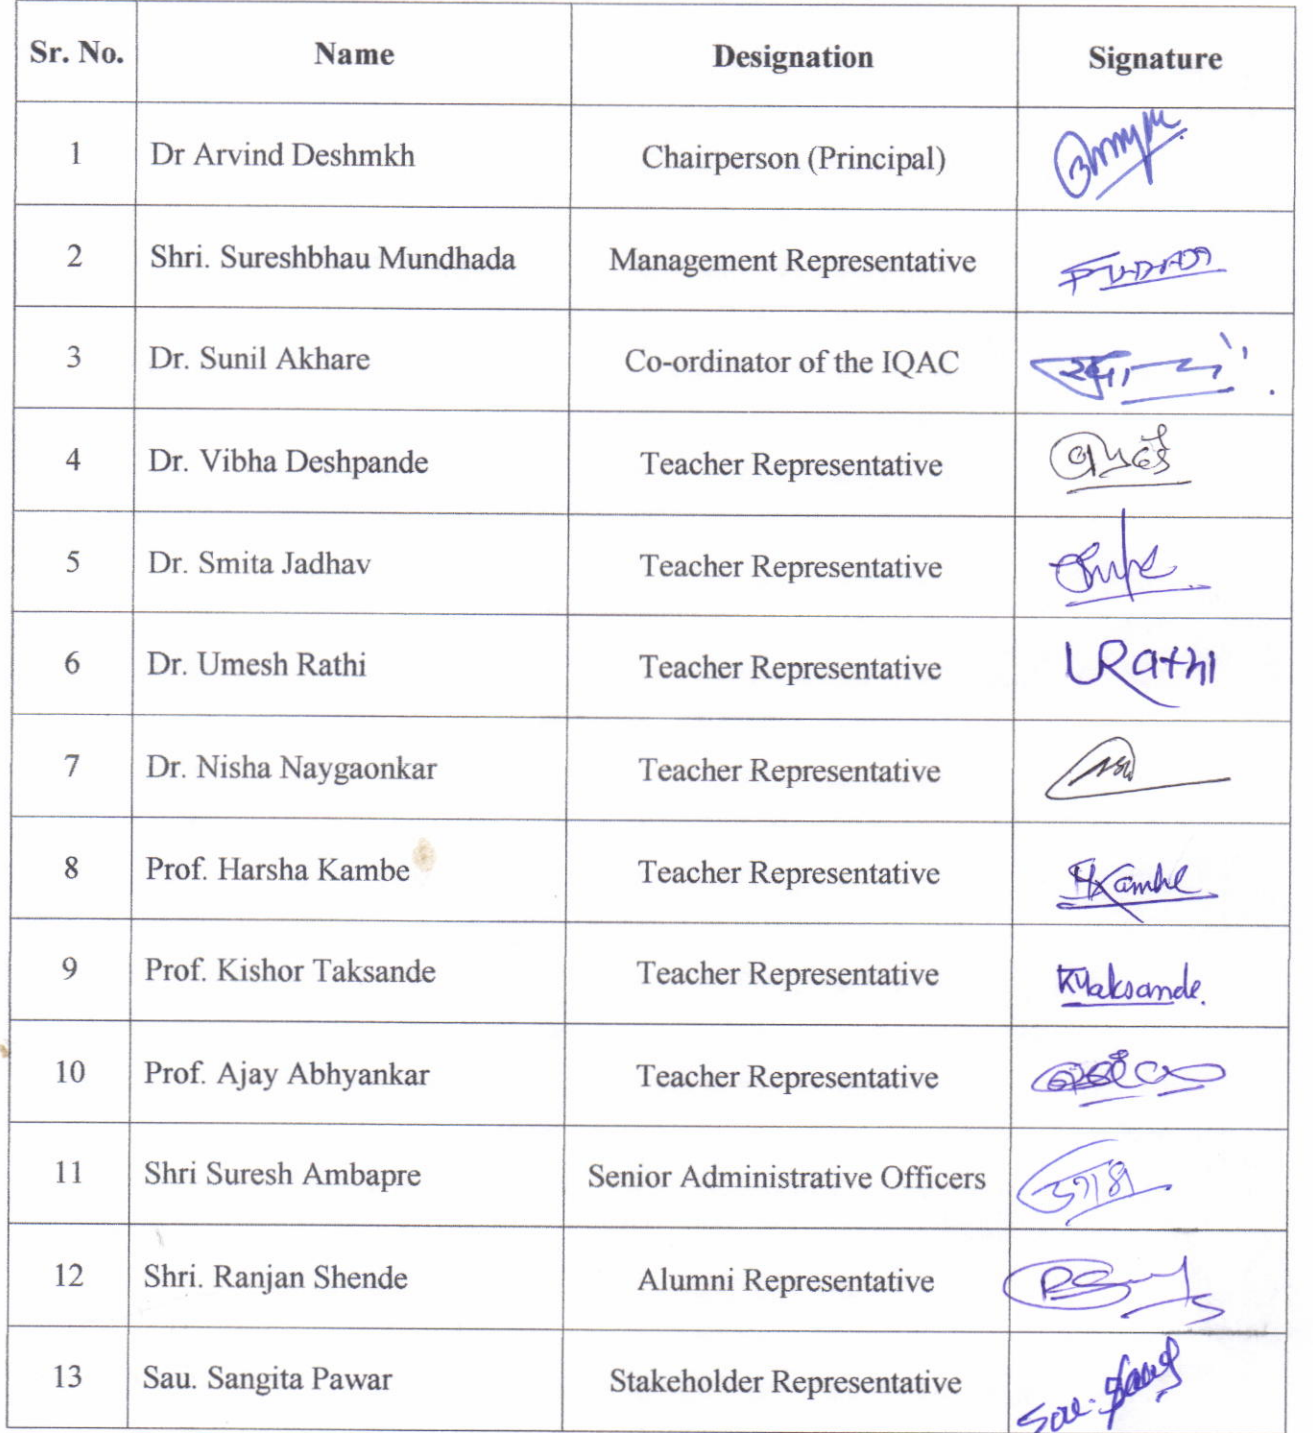 Sr. No. Name Designation Signature
1 Dr Arvind Deshmkh Chairperson (Principal)
2 Shri. Sureshbhau Mundhada Management Representative
3 Dr. Sunil Akhare Co-ordinator of the IQAC
4 Dr. Vibha Deshpande Teacher Representative
5 Dr. Smita Jadhav Teacher Representative
6 Dr. Umesh Rathi Teacher Representative URathi
7 Dr. Nisha Naygaonkar Teacher Representative
8 Prof. Harsha Kambe Teacher Representative HKambe
9 Prof. Kishor Taksande Teacher Representative KTaksande.
10 Prof. Ajay Abhyankar Teacher Representative
11 Shri Suresh Ambapre Senior Administrative Officers
12 Shri. Ranjan Shende Alumni Representative
13 Sau. Sangita Pawar Stakeholder Representative